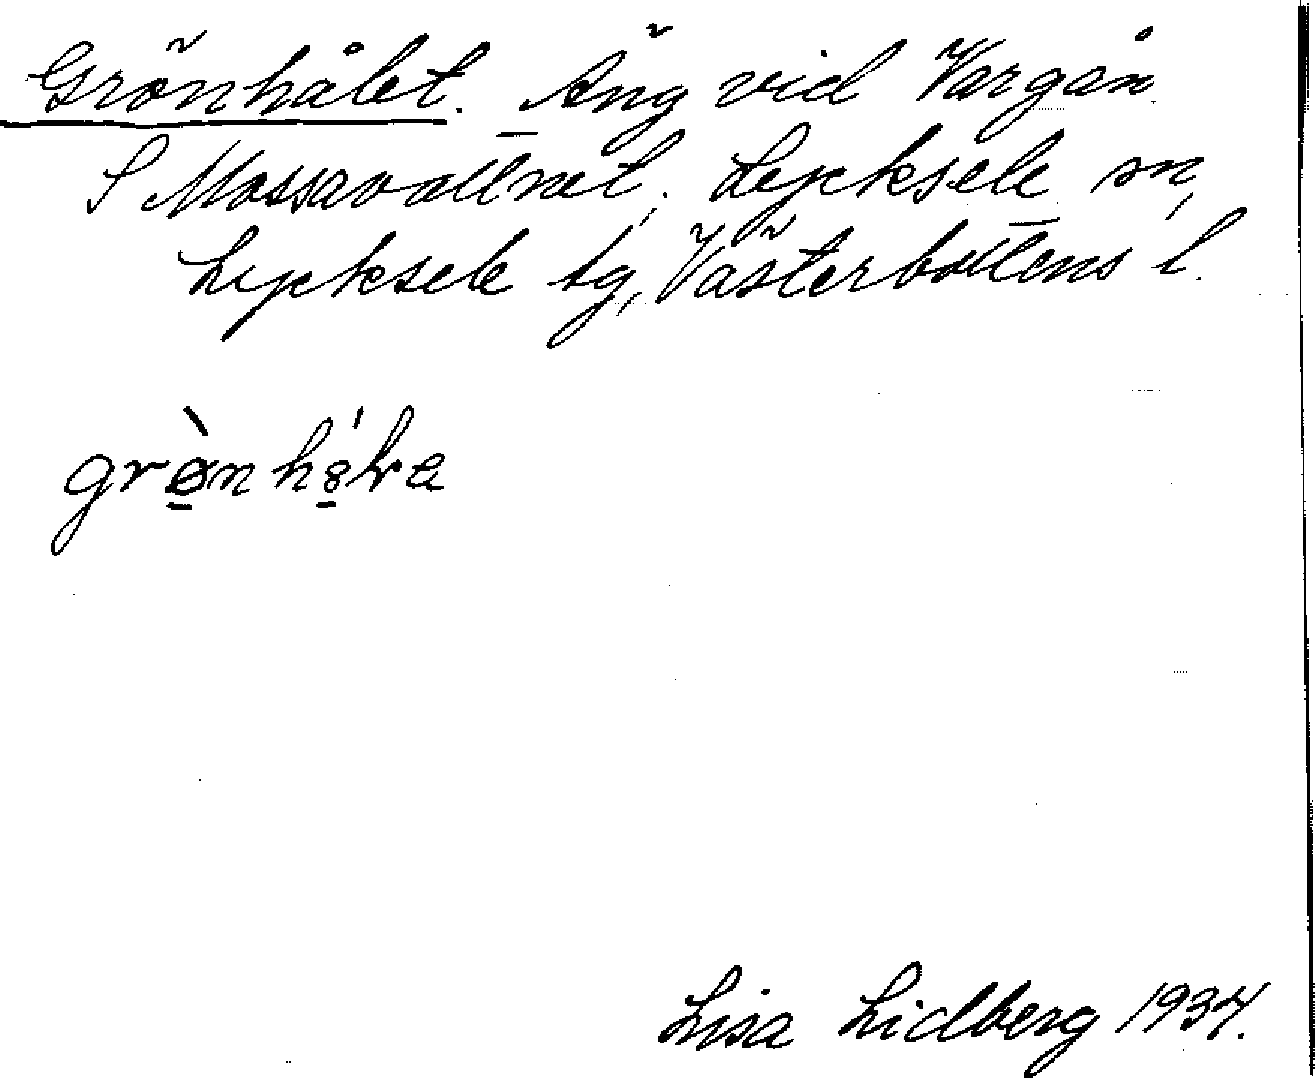 Grönhålet. Äng vid Vargån
S Mossavattnet, Lycksele sn,
Lycksele tg, Västerbottens l.
Lisa Lidberg 1934.